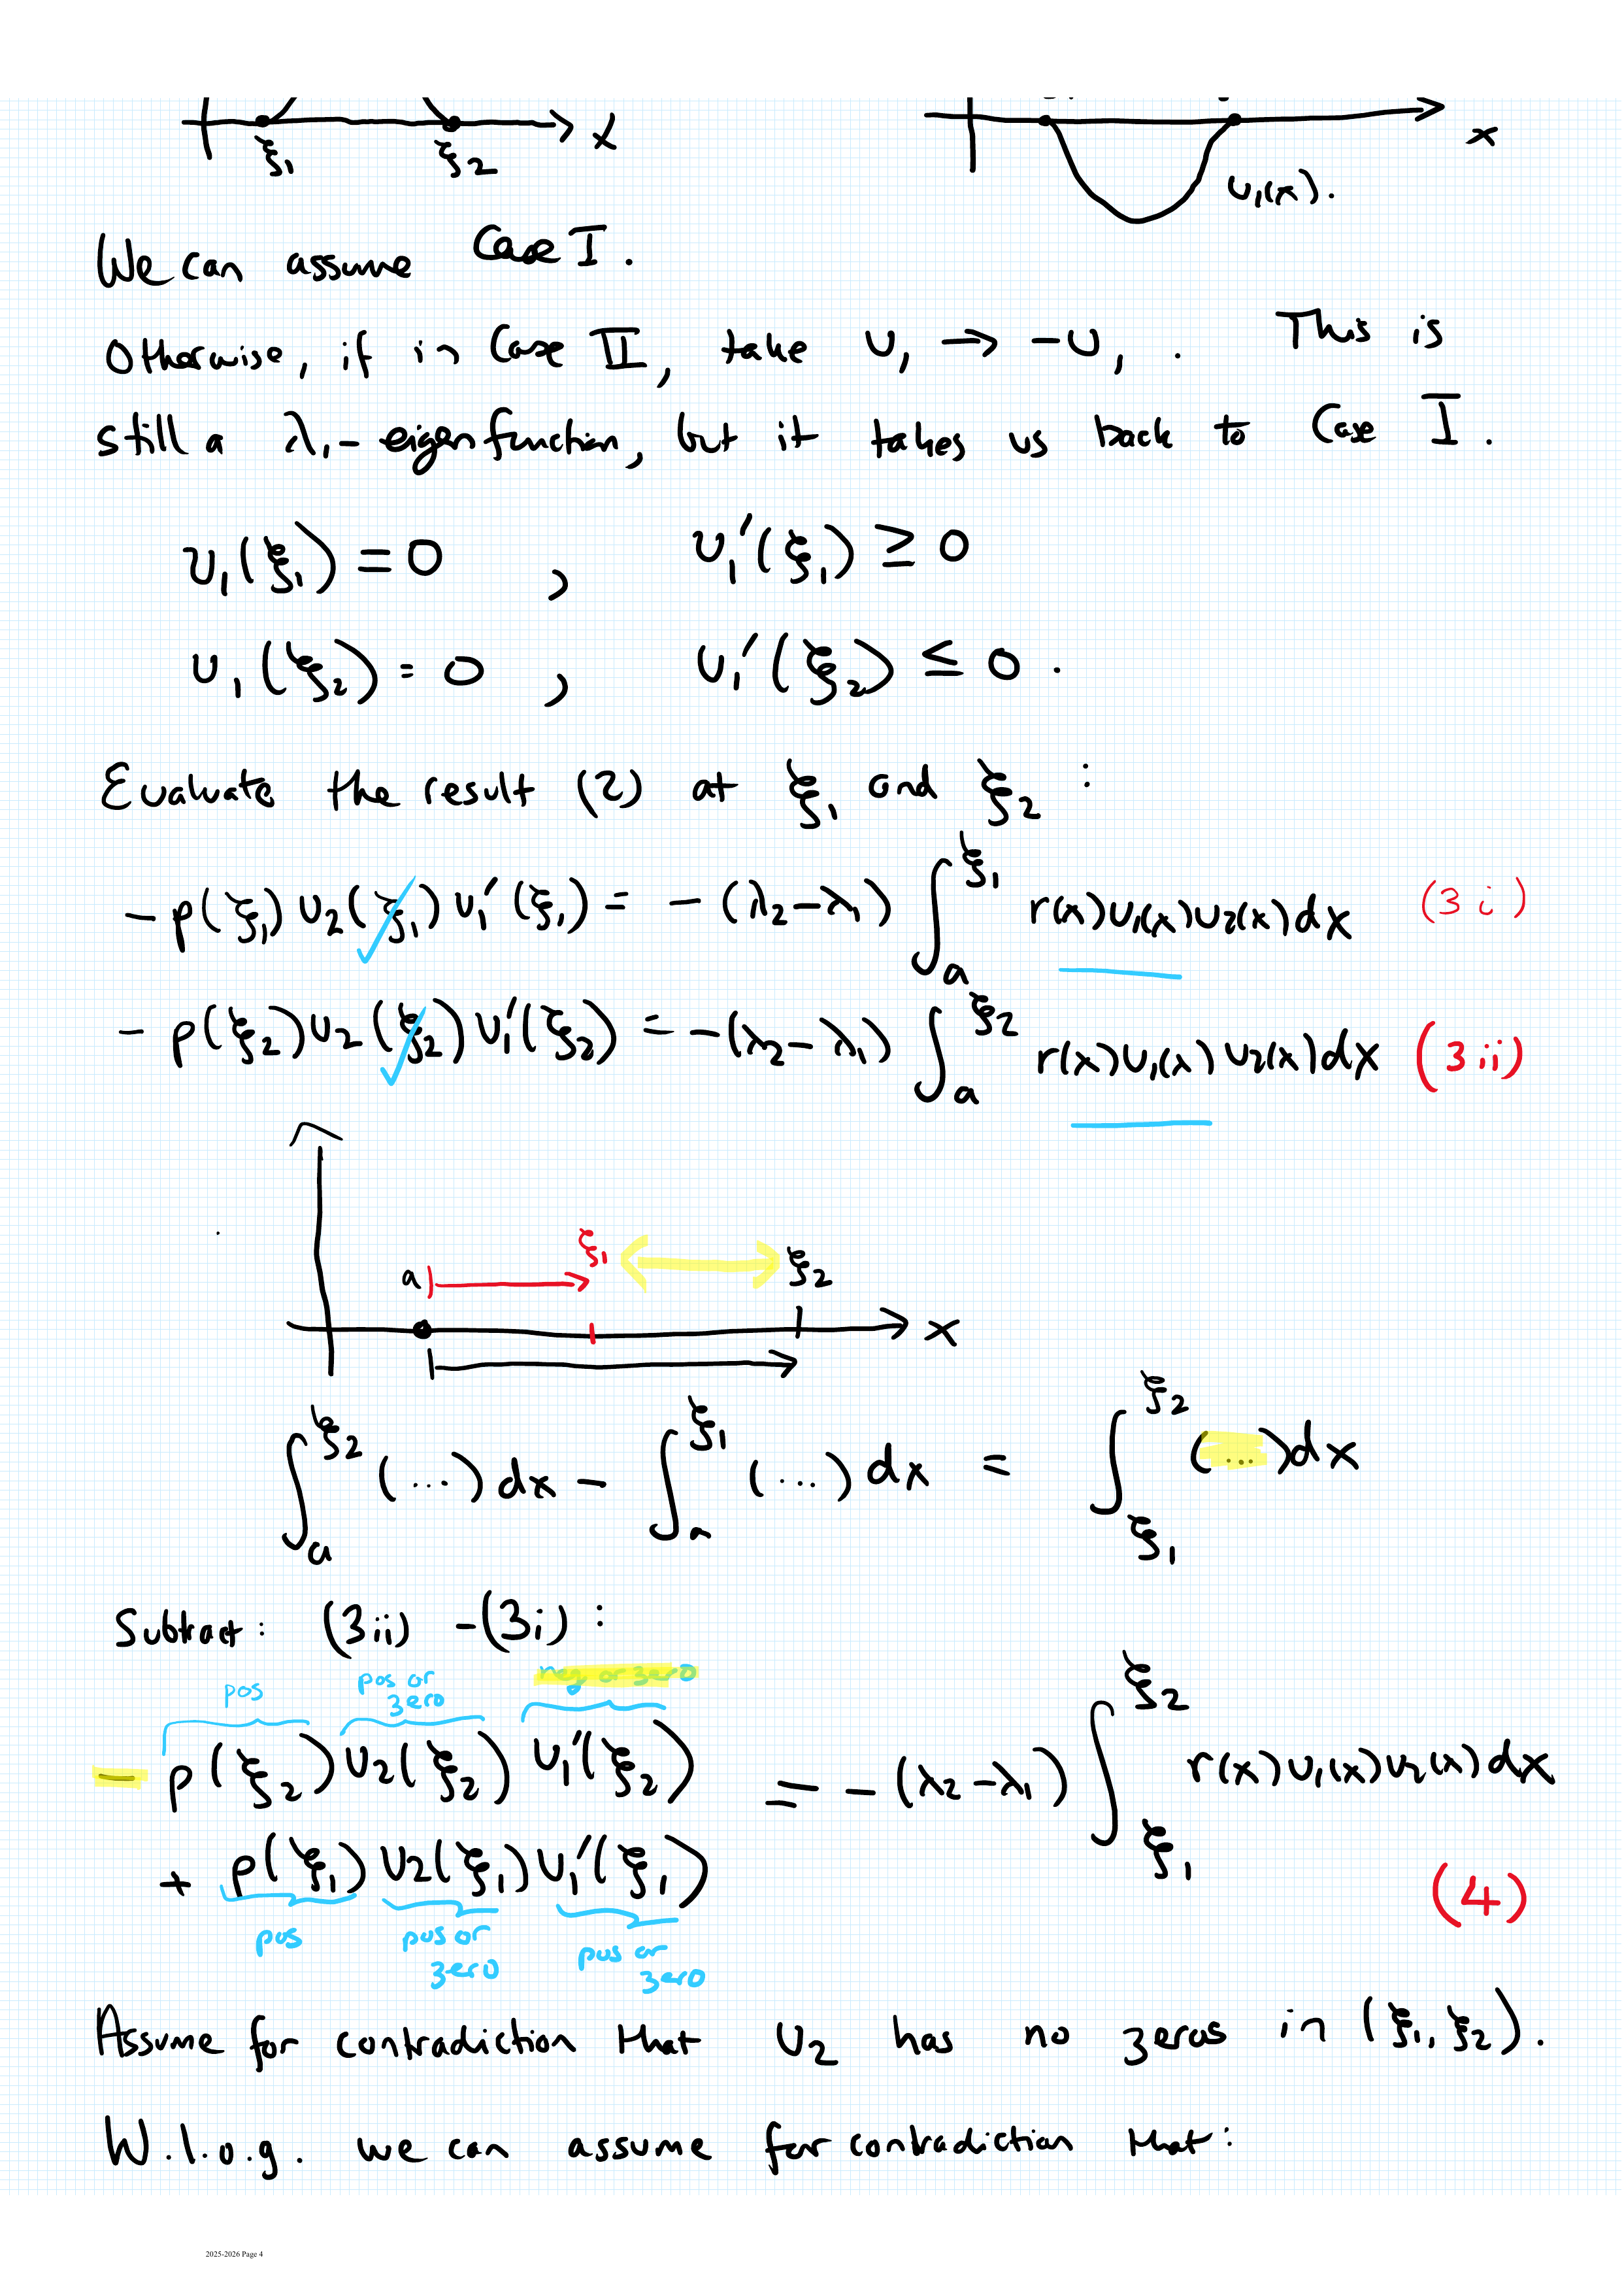 x x
ξ₁ ξ₂ u₁(x).
We can assume Case I.
Otherwise, if in Case II, take u₁ → -u₁. This is
still a λ₁-eigenfunction, but it takes us back to Case I.
u₁(ξ₁) = 0 , u₁'(ξ₁) ≥ 0
u₁(ξ₂) = 0 , u₁'(ξ₂) ≤ 0.
Evaluate the result (2) at ξ₁ and ξ₂:
- p(ξ₁) u₂(ξ₁) u₁'(ξ₁) = - (λ₂-λ₁) ∫_a^ξ₁ r(x)u₁(x)u₂(x)dx (3i)
- p(ξ₂)u₂(ξ₂)u₁'(ξ₂) = -(λ₂-λ₁) ∫_a^ξ₂ r(x)u₁(x)u₂(x)dx (3ii)
a ξ₁ ξ₂
x
∫_a^ξ₂ (...) dx - ∫_a^ξ₁ (...) dx = ∫_ξ₁^ξ₂ (...)dx
Subtract: (3ii) -(3i):
pos pos or zero neg or zero
- p(ξ₂)u₂(ξ₂) u₁'(ξ₂) = - (λ₂-λ₁) ∫_ξ₁^ξ₂ r(x)u₁(x)u₂(x)dx
+ p(ξ₁) u₂(ξ₁)u₁'(ξ₁) (4)
pos pos or zero pos or zero
Assume for contradiction that u₂ has no zeros in (ξ₁, ξ₂).
W.l.o.g. we can assume for contradiction that:
2025-2026 Page 4